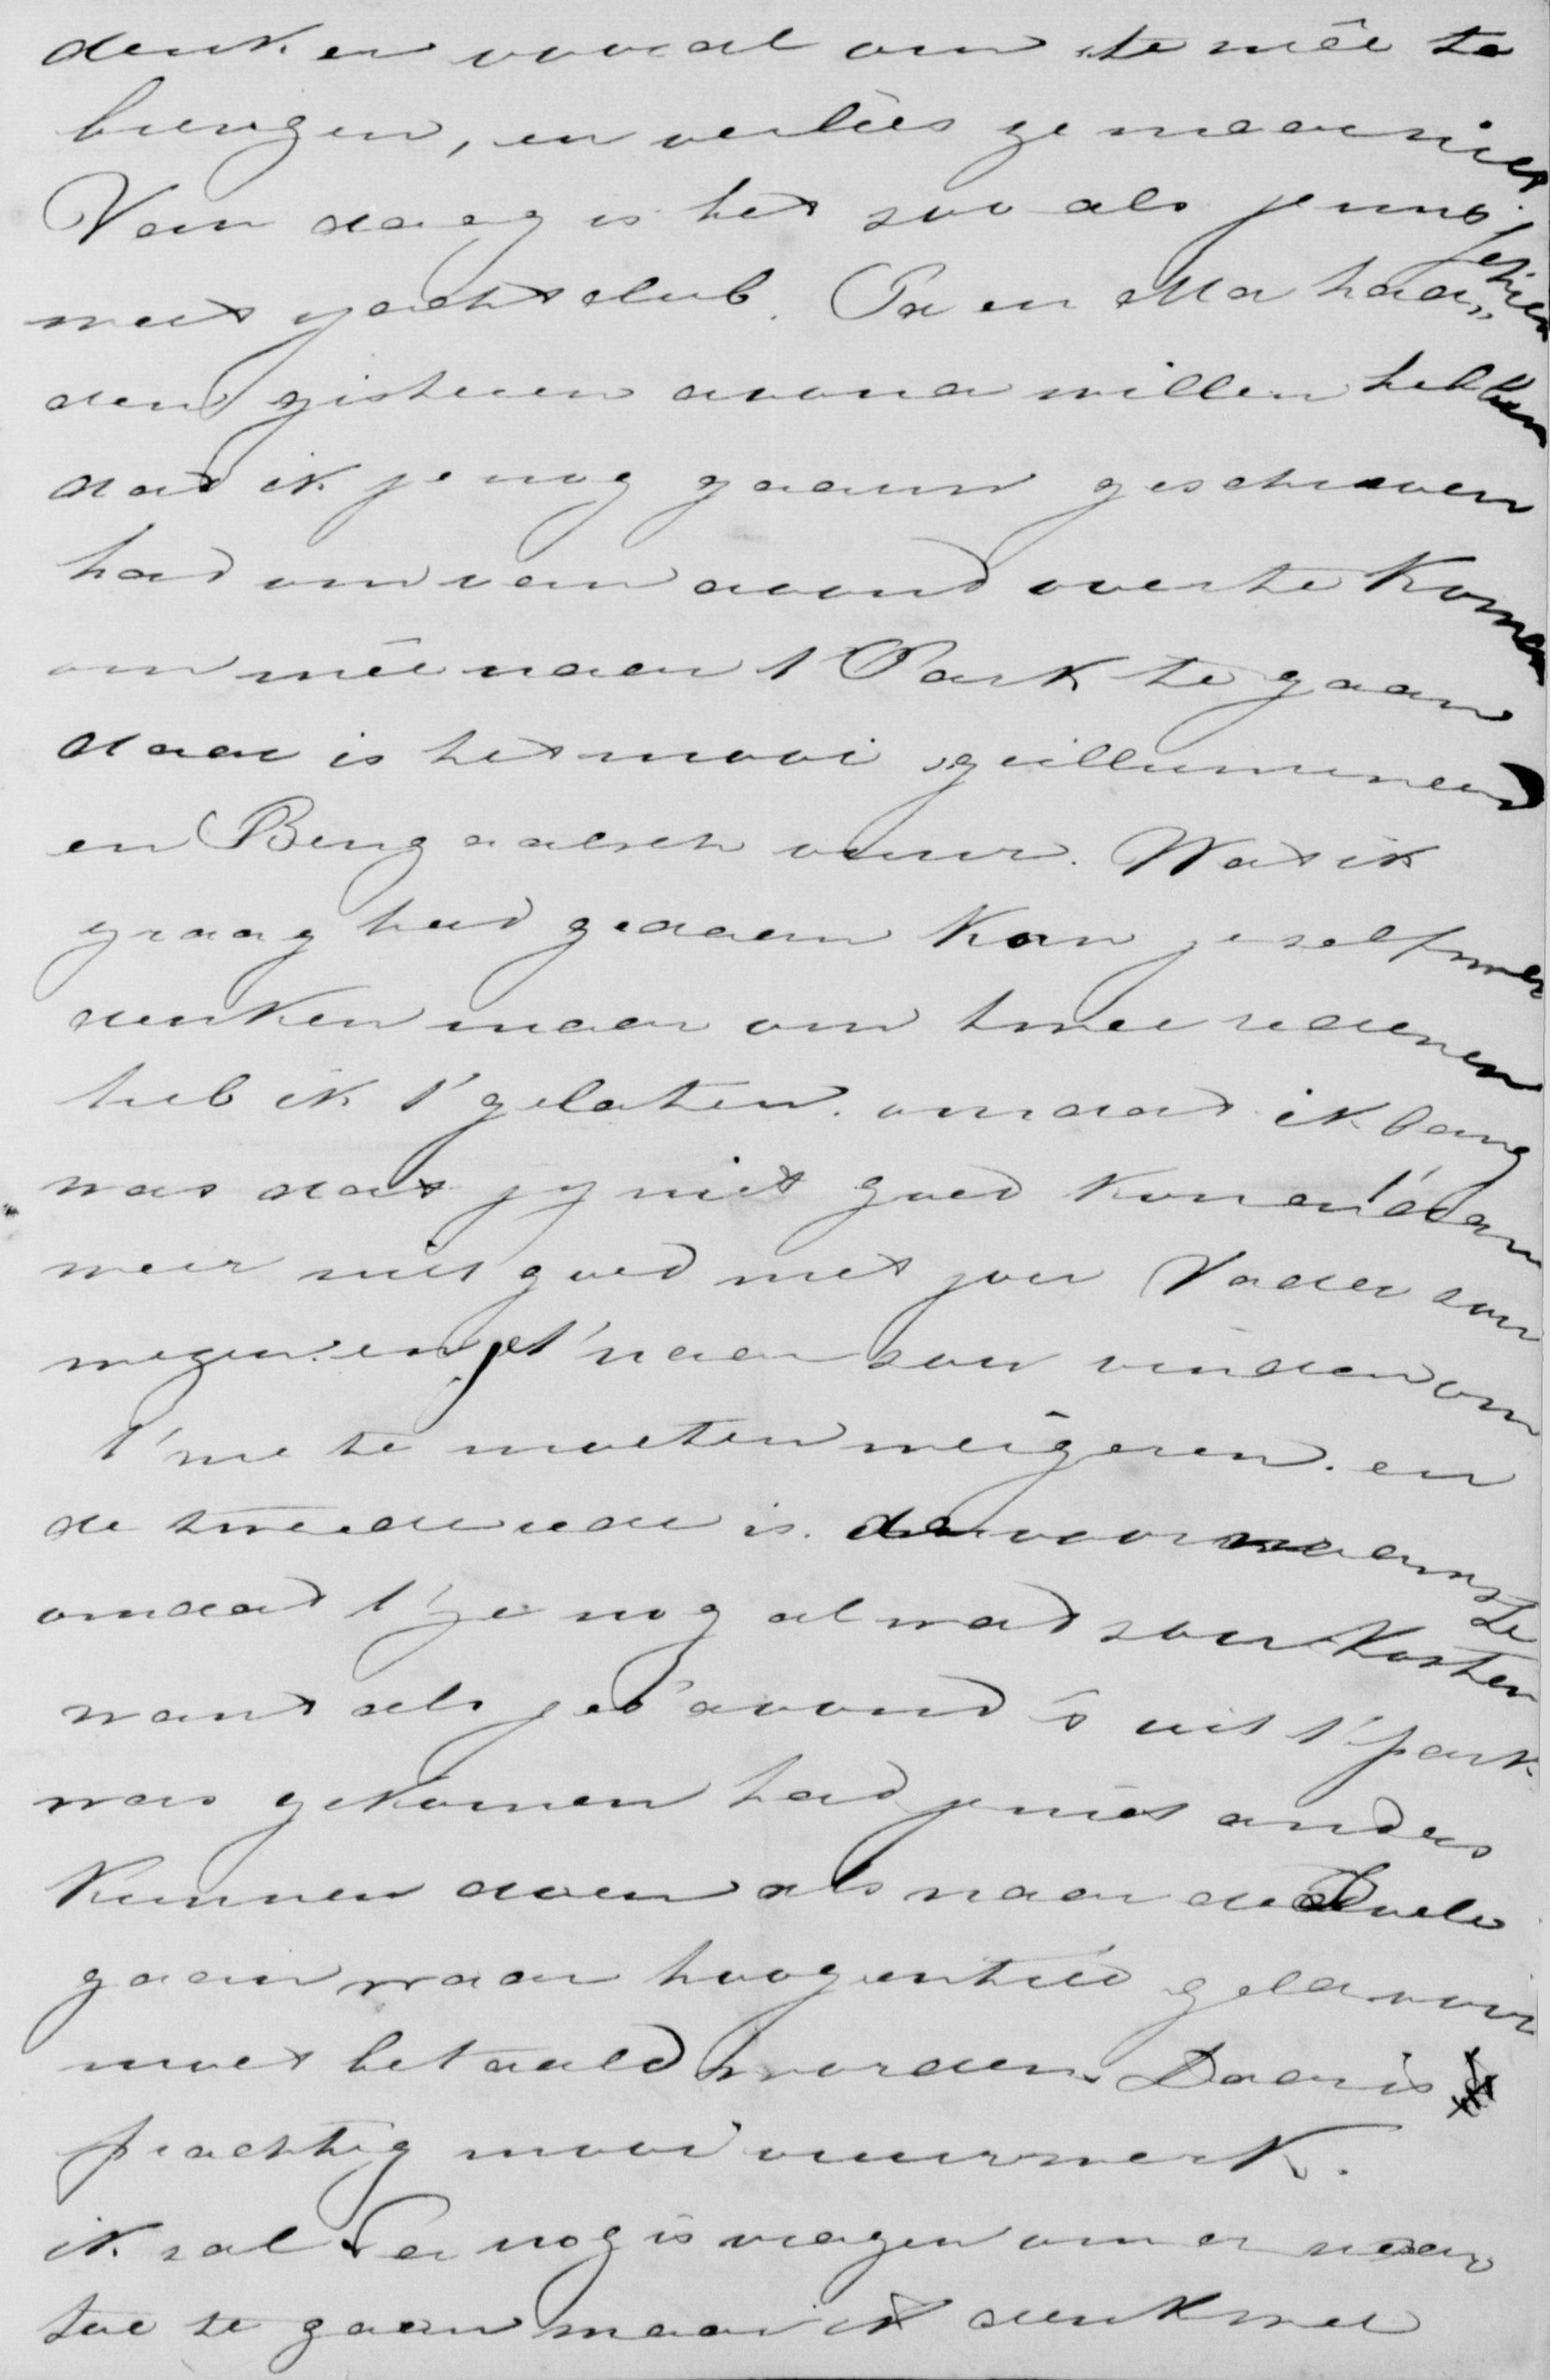 denk er vooral om ze meê te
brengen, en verlies ze maar niet.
Van daag is het zoo als je misschien
weet yachtclub. Pa en Ma had„
den gisteren avond willen hebben
dat ik je nog gaauw geschreven
had om van avond over te komen
om meê naar t Park te gaan
daar is het mooi geillumineerd
en Bengaalsch vuur. Wat ik
graag had gedaan kan je zelf wel
denken maar om twee redenen
heb ik t' gelaten. omdat ik bang
was dat jy niet goed kon en t' dan
weer niet goed met jou Vader zou
wezen. en je t' naar zou vinden om
t' me te moeten weigeren. en
de tweede rede is. de voornaamste
omdat t' je nog al wat zou kosten
want als je s'avond's uit t' park
was gekomen had je niet anders
kunnen doen als naar de Doele
gaan waar hoog entrée geld voor
moet betaald worden. Daar is
prachtig mooi vuurwerk.
ik zal Pa nog is vragen om er naar
toe te gaan maar ik denk wel